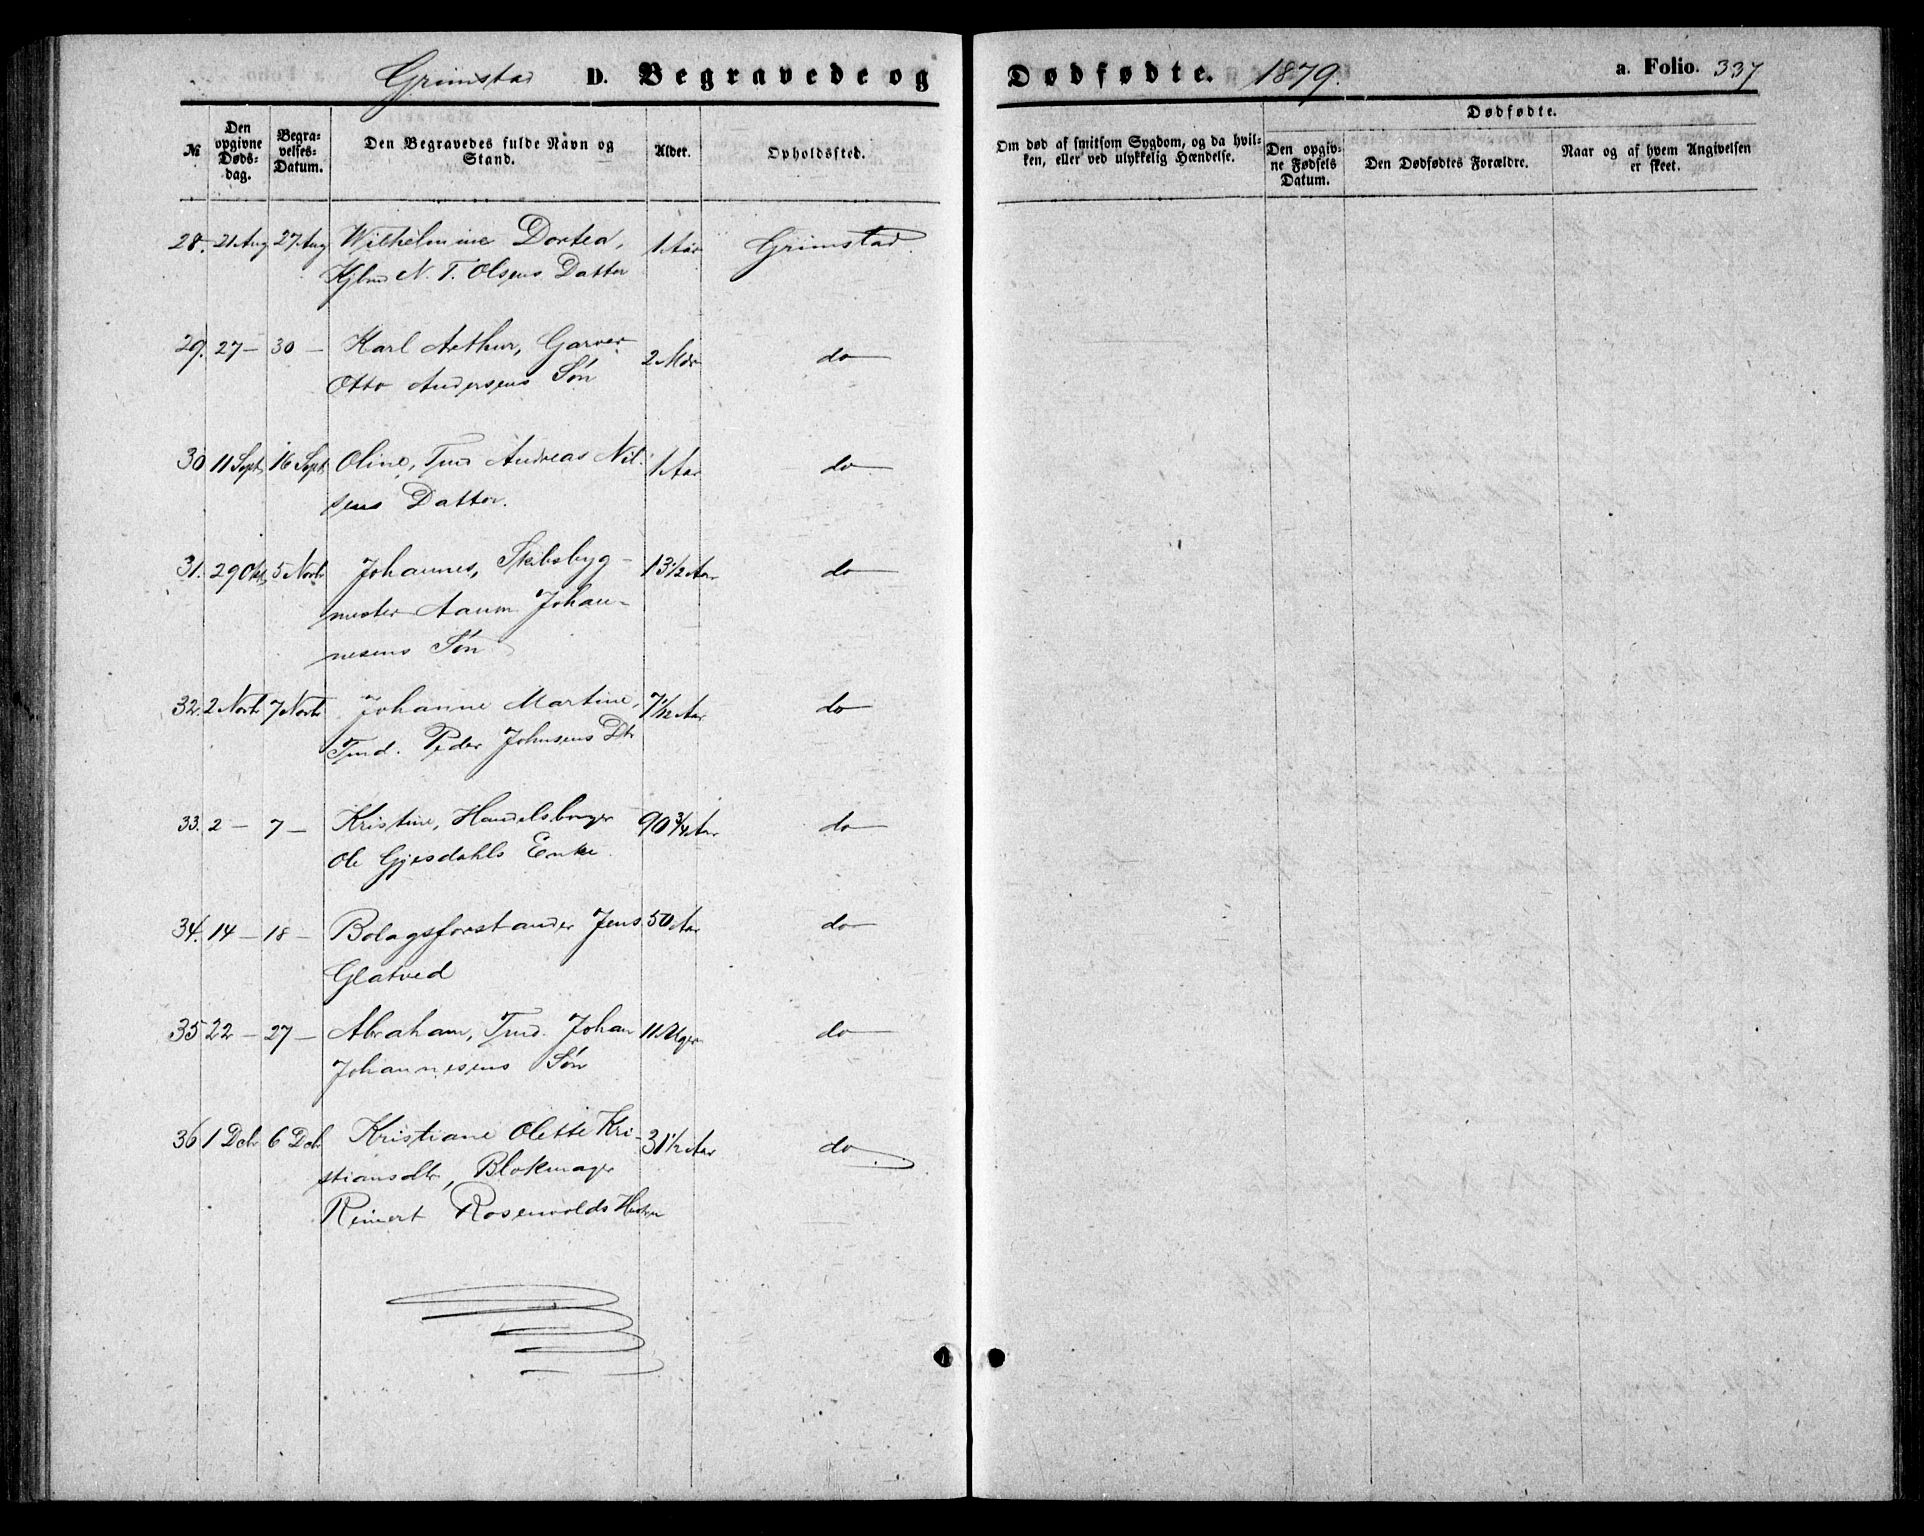 Grimstad D. Begravede og Dødfødte. 1879. a. Folio. 337
№
Den opgivne Døds-dag.
Begra-velses-Datum.
Den Begravedes fulde Navn og Stand.
Alder.
Opholdssted.
Om død af smitsom Sygdom, og da hvil-
ken, eller ved ulykkelig Hændelse.
Dødfødte.
Den opgiv-
ne Fødsels
Datum.
Den Dødfødtes Forældre.
Naar og af hvem Angivelsen
er skeet.
28. 21 Aug 27 Aug Wilhelmine Dortea, 1 Aar Grimstad.
N. T. Olsens Datter
29. 27 – 30 – Karl Arthur, Garver 2 Mdr do
Otto Andersens Søn
30 11 Sept 16 Sept Oline, Tmd Andreas Nil- 1 Aar do
sens Datter.
31. 29 Okt 5 Novbr Johannes, Skibsbyg- 13 1/2 Aar do
mester Aanon Johan-
nesens Søn
32. 2 Novbr 7 Novbr Johanne Martine, 7 1/12 Aar do
Tmd. Peder Johnsens Dtr
33. 2 – 7 – Kristine, Handelsborger 90 3/4 Aar do
Ole Gjesdahls Enke.
34. 14 – 18 – Bolagsforstander Jens 50 Aar do
Glatved
35 22 – 27 – Abraham, Tmd. Johan 11 Uger do
Johannesens Søn
36 1 Dcbr 6 Dcbr Kristiane Olette Kri- 31 1/2 Aar do
stiansdtr, Blokmager
Reinert Rosenvolds Hustru